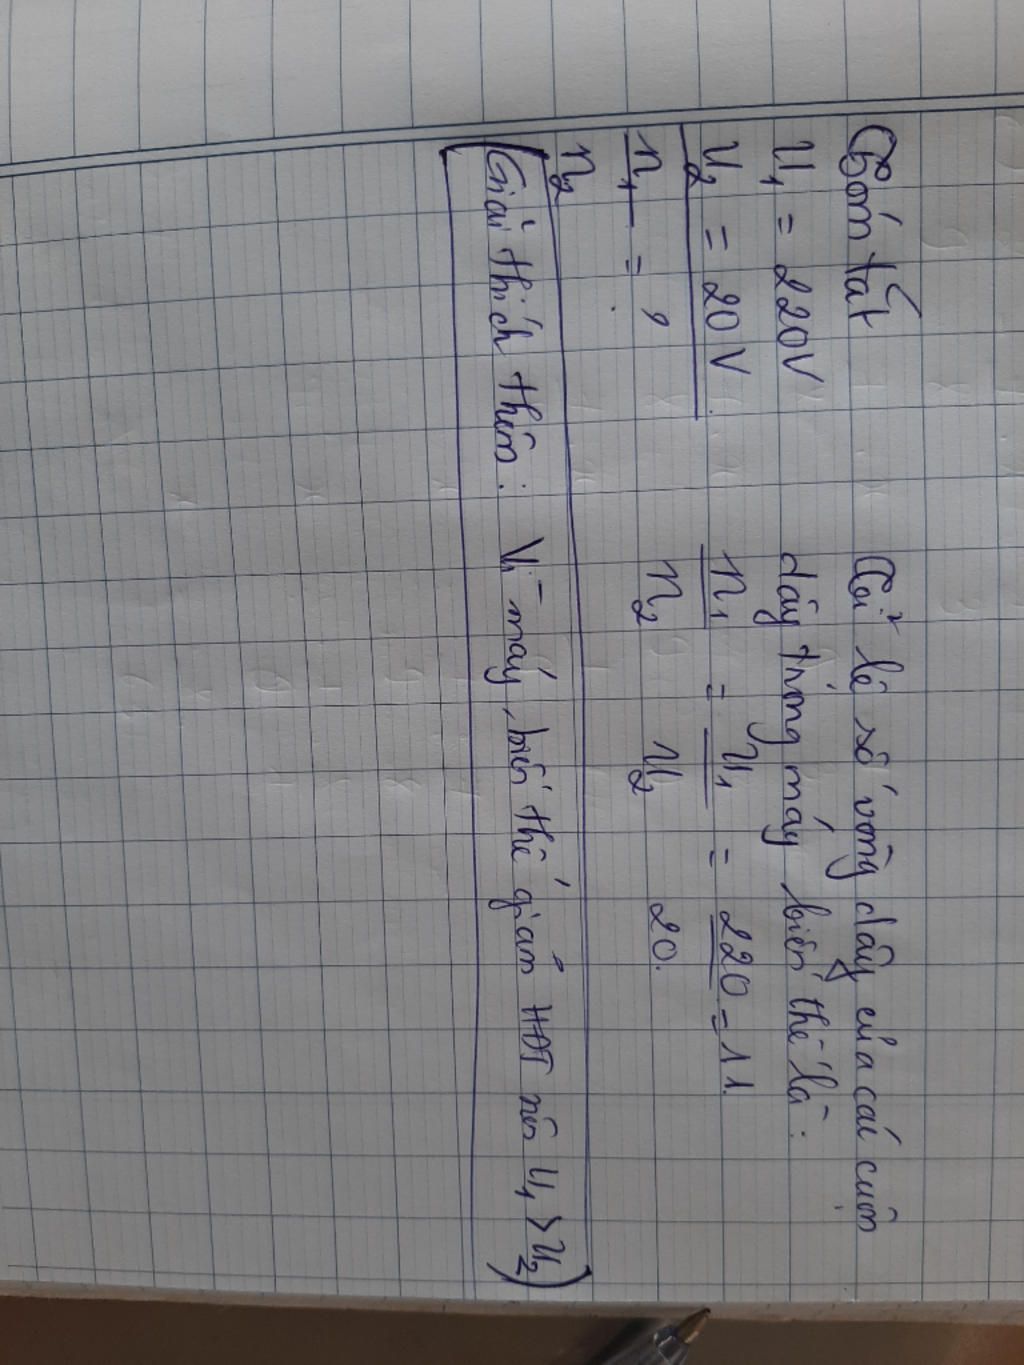 Tóm tắt
U₁ = 220V
U₂ = 20V
n₁ = ?
n₂
Tỉ lệ số vòng dây của các cuộn
dây trong máy biến thế là:
n₁ = U₁ = 220 = 11.
n₂ U₂ 20.
(Giải thích thêm: Vì máy biến thế giảm HĐT nên U₁ > U₂)